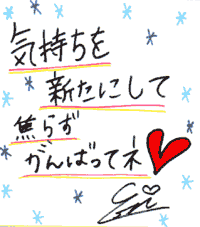 気持ちを
新たにして
焦らず
がんばってネ